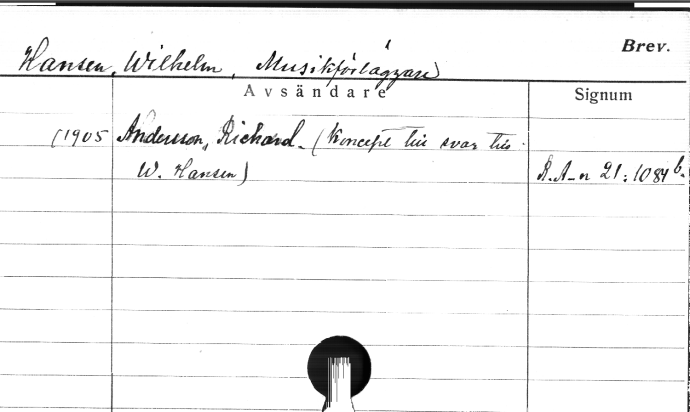 Brev.
Hansen, Wilhelm, Musikförläggare
Avsändare
Signum
(1905 Andersson, Richard. (Koncept till svar till
W. Hansen) R.A-n 21:1084 b.